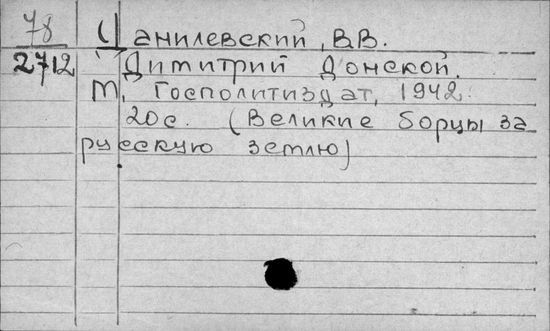 78 Данилевский, В.В.
2712 Димитрий Донской.
М, Госполитиздат, 1942
20с. (Великие борцы за
русскую землю)